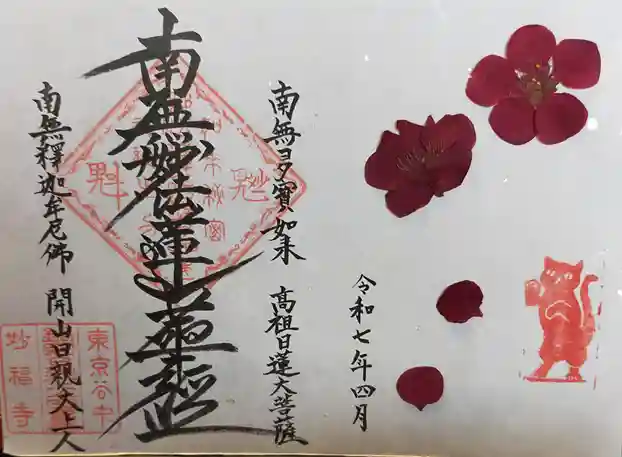 令和七年四月
南無多寳如来
高祖日蓮大菩薩
南無妙法蓮華經
南無釋迦牟尼佛
開山日親大上人
東京谷中
妙福寺